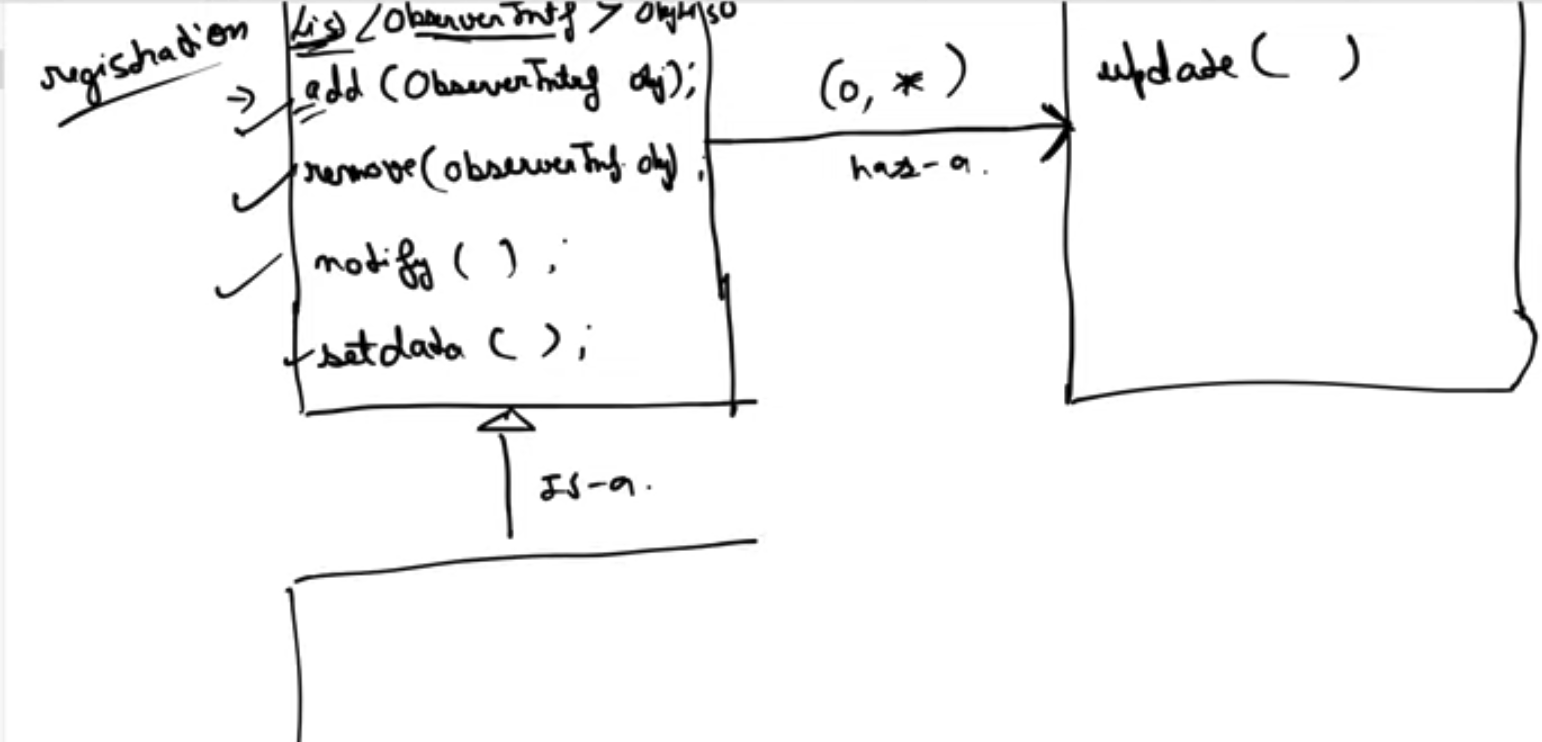 registration
List <ObserverIntf>
add (ObserverIntrf obj);
remove(observerInf obj) ;
notify ( ) ;
setdata ( ) ;
(0, *)
has-a.
update ( )
IS-a.